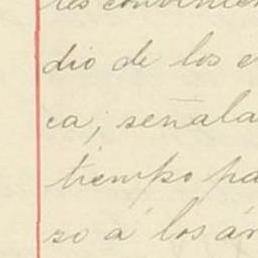 les convenien
dio de los e
ca, señala
tiempo pa
zo á los ár